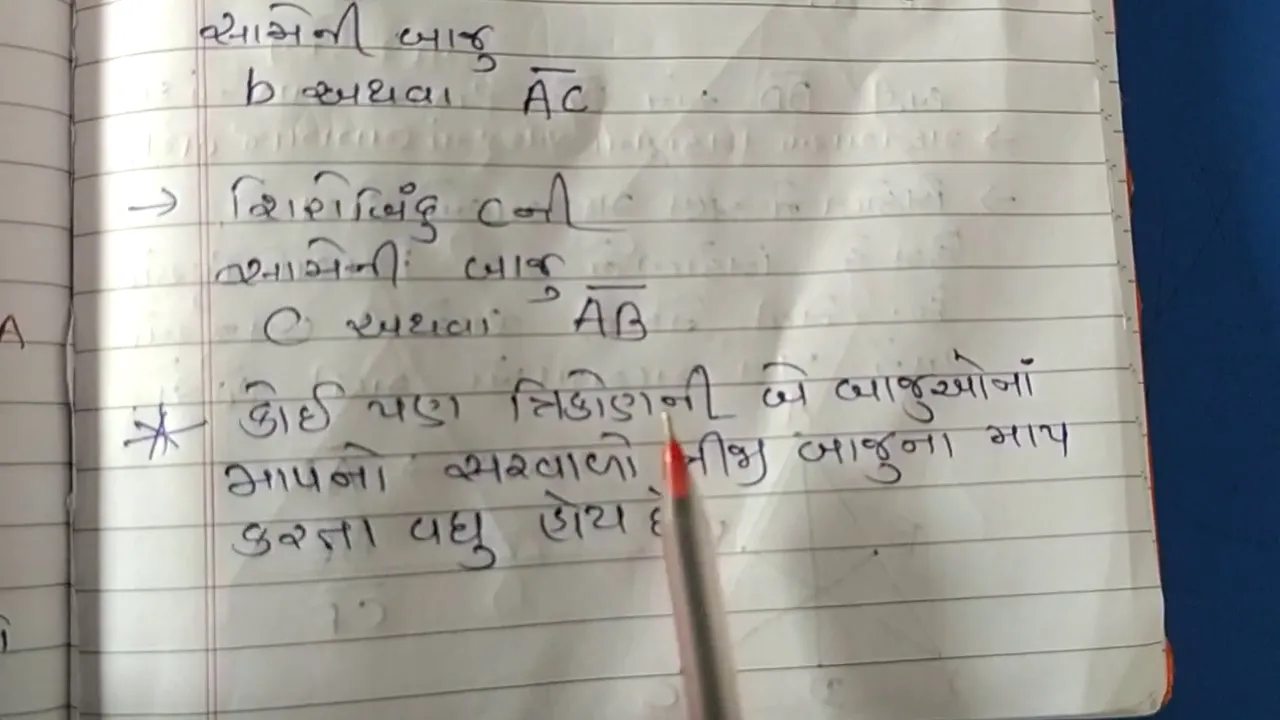 સામેની બાજુ
b અથવા A̅C̅
→ શિરોબિંદુ Cની
સામેની બાજુ
C અથવા A̅B̅
* કોઈ પણ ત્રિકોણની બે બાજુઓનાં
માપનો સરવાળો ત્રીજી બાજુના માપ
કરતા વધુ હોય છે
A